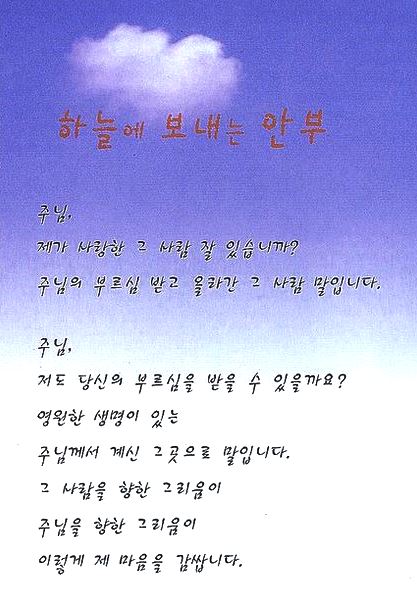 하늘에 보내는 안부
주님,
제가 사랑한 그 사람 잘 있습니까?
주님의 부르심 받고 올라간 그 사람 말입니다.
주님,
저도 당신의 부르심을 받을 수 있을까요?
영원한 생명이 있는
주님께서 계신 그곳으로 말입니다.
그 사람을 향한 그리움이
주님을 향한 그리움이
이렇게 제 마음을 감쌉니다.